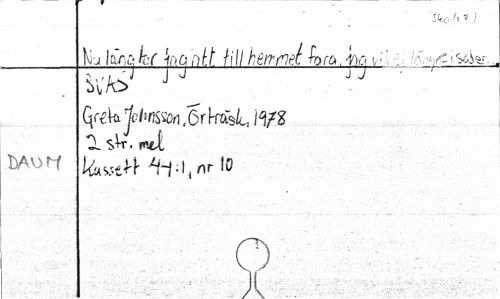 Nu längtar jag att till hemmet fara, jag vill ej längre
SVAS
Greta Johnsson, Örträsk, 1978
2 str. mel
DAUM
Kassett 44:1, nr 10